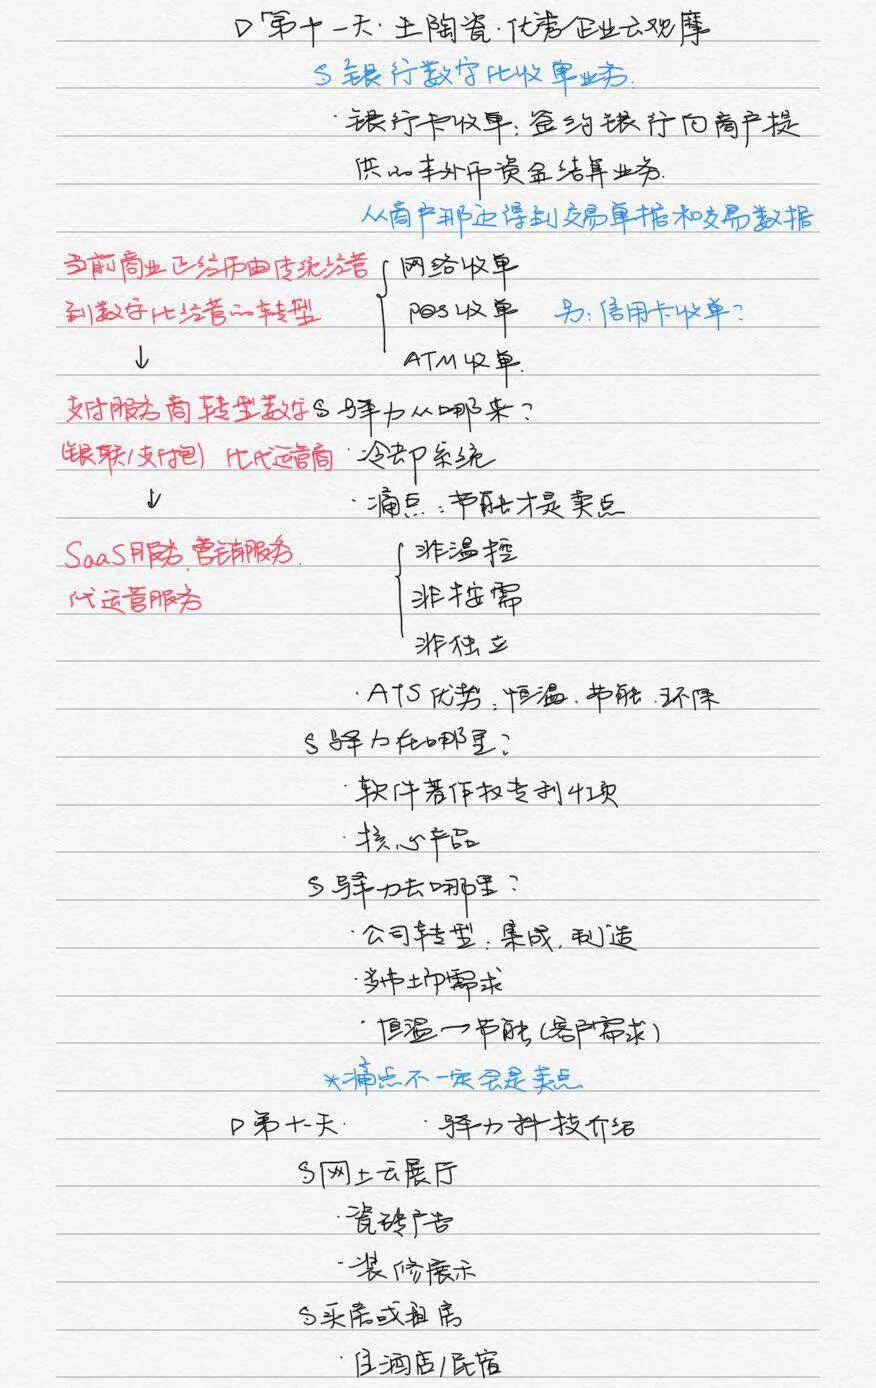 D 第十一天·土陶瓷·优秀企业云观摩
S 银行数字化收单业务.
·银行卡收单:签约银行向商户提
供的本外币资金结算业务.
从商户那边得到交易单据和交易数据
当前商业正经历由传统经营
到数字化经营的转型
↓
支付服务商转型数字
(银联/支付包) 化代运营商
↓
SaaS服务、营销服务、
代运营服务
网络收单
POS收单 另:信用卡收单?
ATM收单.
S 驿力从哪来?
·冷却系统
·痛点:节能才是卖点
非温控
非按需
非独立
·ATS优势:恒温、节能、环保
S 驿力在哪里?
·软件著作权专利41项
·核心产品
S 驿力去哪里?
·公司转型:集成、制造
·当市场需求
·恒温→节能(客户需求)
*痛点不一定会是卖点
D 第十一天· ·驿力科技介绍
S 网上云展厅
·瓷砖广告
·装修展示
S 买房或租房
·住酒店/民宿